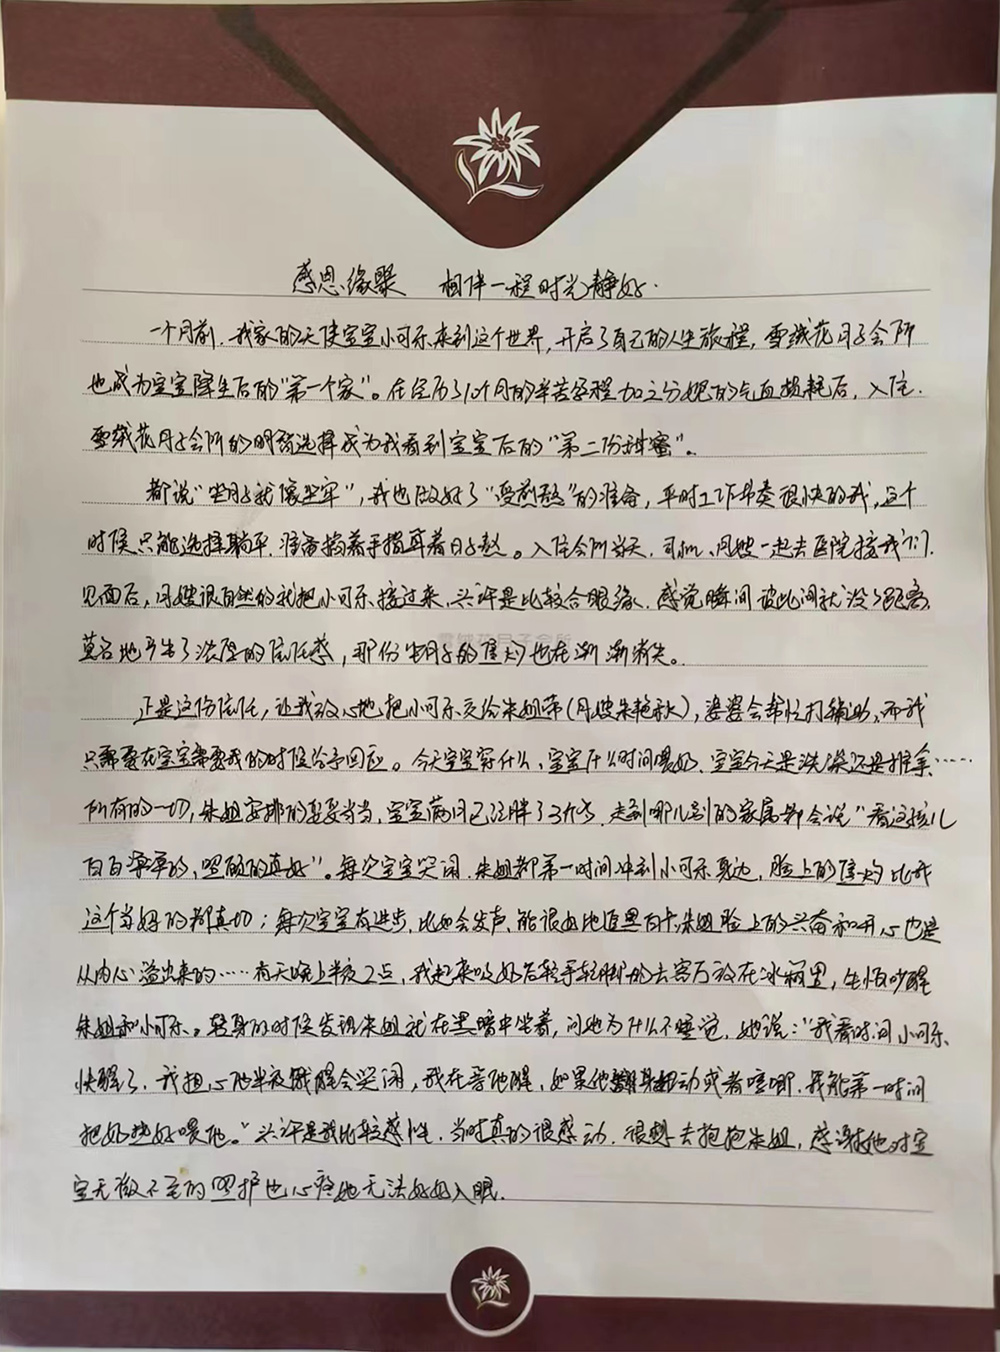 感恩缘聚 相伴一程时光静好.
一个月前,我家的天使宝宝小可乐来到这个世界,开启了自己的人生旅程,雪绒花月子会所
也成为宝宝降生后的"第一个家"。在经历了10个月的辛苦历程加之分娩的气血损耗后,入住
雪绒花月子会所的明智选择成为我看到宝宝后的"第二份甜蜜"。
都说"坐月子就像坐牢",我也做好了"受煎熬"的准备,平时工作节奏很快的我,这个
时候只能选择躺平,准备捂着手指耳着日子熬。入住会所当天,司机、月嫂一起去医院接我们.
见面后,月嫂很自然的就把小可乐接过来,兴许是比较合眼缘,感觉瞬间彼此间就没了距离,
莫名地产生了浓厚的信任感,那份坐月子的焦灼也在渐渐消失。
雪绒花月子会所
正是这份信任,让我放心地把小可乐交给朱姐带(月嫂朱艳秋),婆婆会帮忙打辅助,而我
只需要在宝宝需要我的时候给予回应。今天宝宝穿什么、宝宝什么时间喂奶、宝宝今天是洗澡还是推拿……
所有的一切,朱姐安排的妥妥当当,宝宝满月已经胖了3斤多,走到哪儿别的家属都会说"看这孩儿
白白净净的,照顾的真好"。每次宝宝哭闹,朱姐都第一时间冲到小可乐身边,脸上的焦灼比我
这个当妈的都真切;每次宝宝有进步,比如会发声、能很好地追黑白卡,朱姐脸上的兴奋和开心也是
从内心溢出来的……有天晚上半夜2点,我起来吸奶后轻手轻脚的去客厅放在冰箱里,生怕吵醒
朱姐和小可乐。转身的时候发现朱姐就在黑暗中坐着,问她为什么不睡觉,她说:"我看时间小可乐
快醒了,我担心他半夜饿醒会哭闹,我在等他醒,如果他翻身扭动或者哼唧,我能第一时间
把奶热好喂他。"兴许是我比较感性,当时真的很感动,很想去抱抱朱姐,感谢她对宝
宝无微不至的照护也心疼她无法好好入眠.